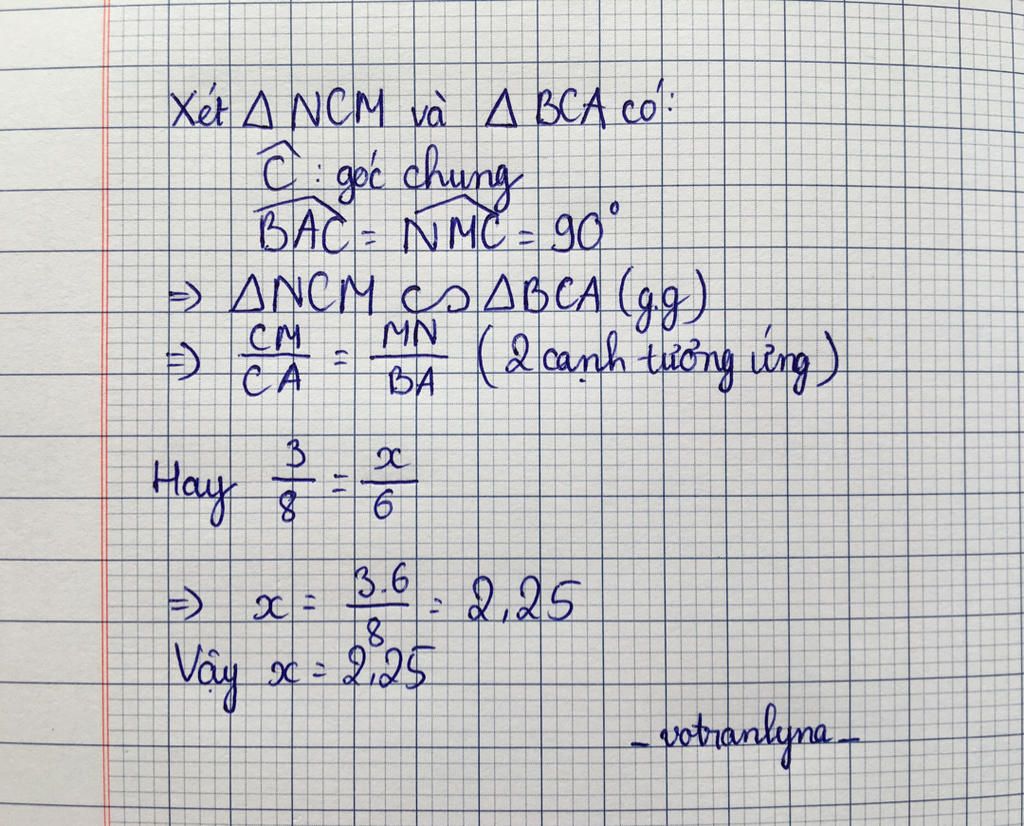 Xét Δ NCM và Δ BCA có:
Ĉ : góc chung
\widehat{BAC} = \widehat{NMC} = 90°
⇒ ΔNCM ∽ ΔBCA (g.g)
⇒ CM/CA = MN/BA (2 cạnh tương ứng)
Hay 3/8 = x/6
⇒ x = 3.6/8 = 2,25
Vậy x = 2,25
_votranlyna_